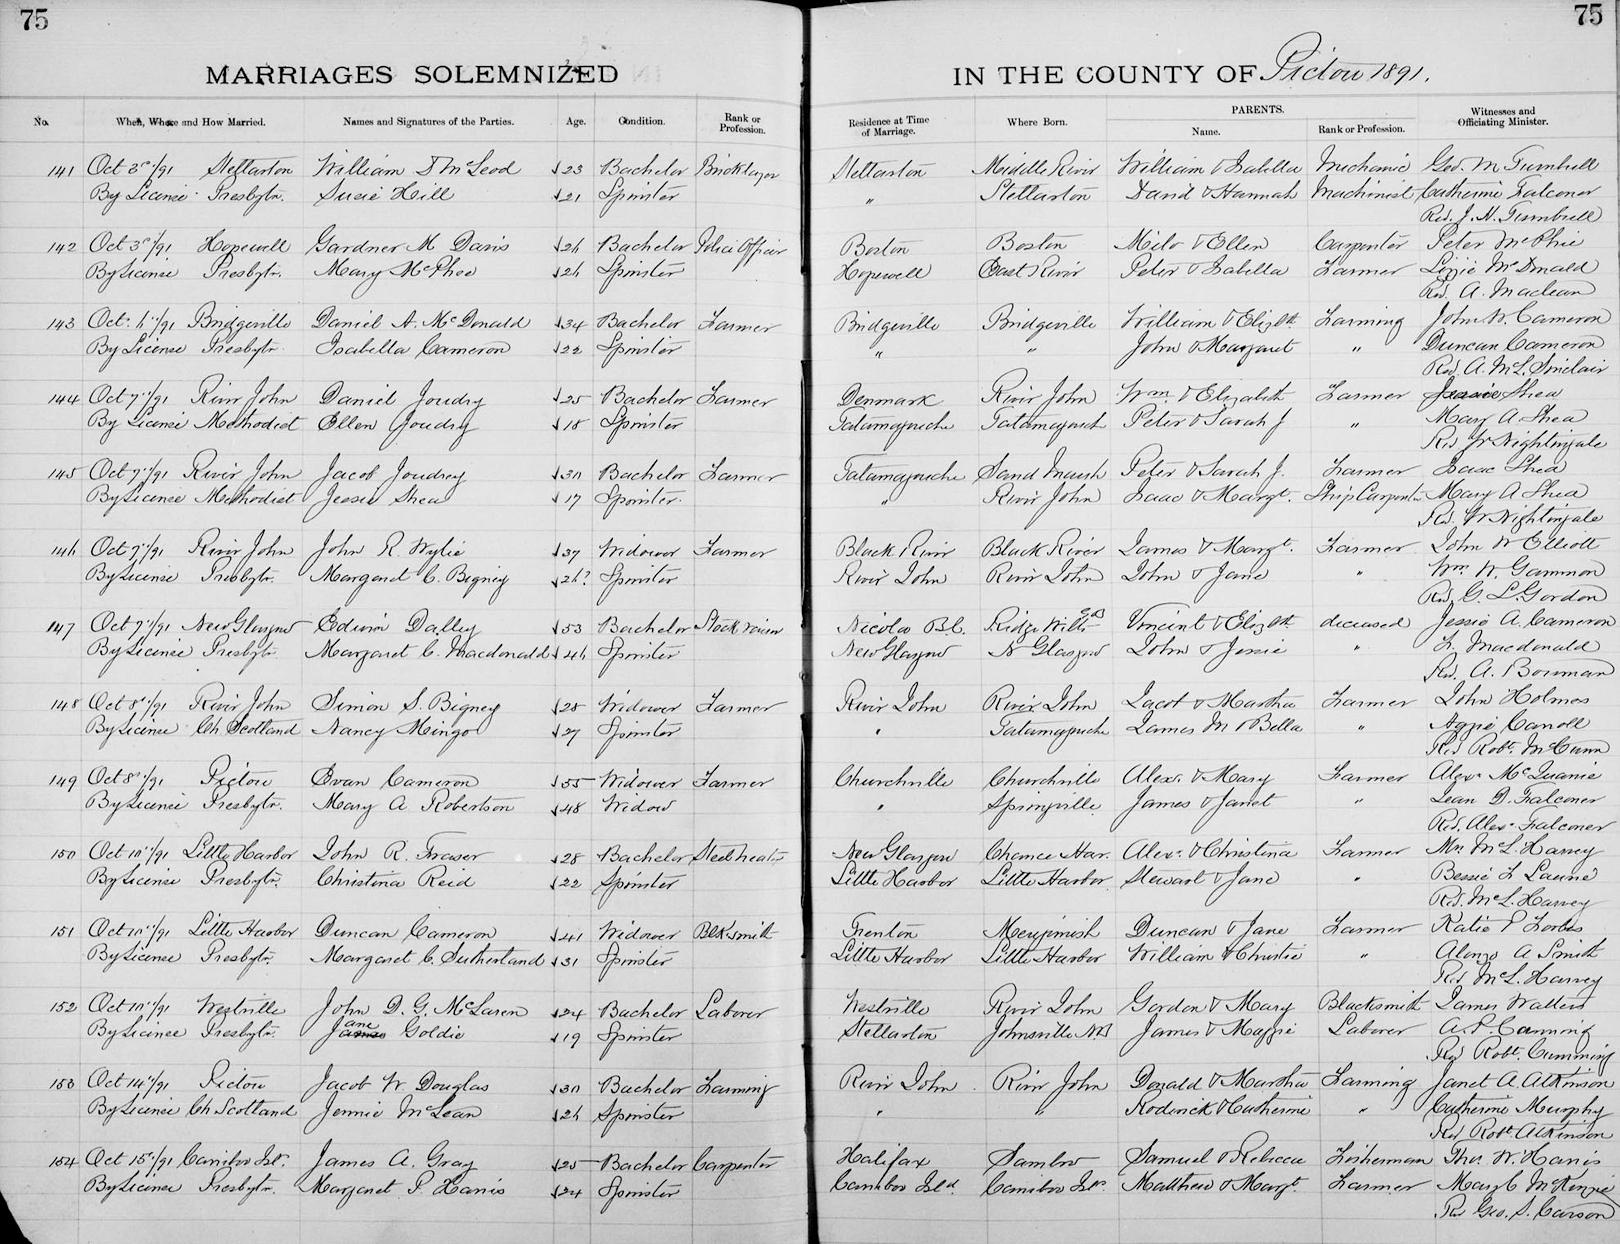 75
75
MARRIAGES SOLEMNIZED IN THE COUNTY OF Pictou 1891.
No. When, Where and How Married. Names and Signatures of the Parties. Age. Condition. Rank or Profession. Residence at Time of Marriage. Where Born. PARENTS. Name. Rank or Profession. Witnesses and Officiating Minister.
141 Oct 3rd/91 Stellarton William D McLeod 23 Bachelor Bricklayer Stellarton Middle River William & Isabella Mechanic Geo. M Turnbull
By License Presbytr. Susie Hill 21 Spinster " Stellarton David & Hannah Machinist Catherine Falconer
Rev. J. H. Turnbull
142 Oct 3rd/91 Hopewell Gardner M Davis 26 Bachelor Police Officer Boston Boston Milo & Ellen Carpenter Peter McPhie
By License Presbytr. Mary McPhee 26 Spinster Hopewell East River Peter & Isabella Farmer Lizzie McDonald
Rev. A. Maclean
143 Oct. 6"/91 Bridgeville Daniel A. McDonald 34 Bachelor Farmer Bridgeville Bridgeville William & Elizbth Farming John W. Cameron
By License Presbytr. Isabella Cameron 22 Spinster " " John & Margaret " Duncan Cameron
Rev. A. McL. Sinclair
144 Oct 7"/91 River John Daniel Joudry 25 Bachelor Farmer Denmark River John Wm. & Elizabeth Farmer Jessie Shea
By License Methodist Ellen Joudry 18 Spinster Tatamagouche Tatamagouch Peter & Sarah J " Mary A Shea
Rev W Nightingale
145 Oct 7"/91 River John Jacob Joudrey 30 Bachelor Farmer Tatamagouche Sand Marsh Peter & Sarah J. Farmer Isaac Shea
By License Methodist Jessie Shea 17 Spinster. " River John Isaac & Margt. Ship Carpenter Mary A Shea
Rev. W Nightingale
146 Oct 7"/91 River John John R. Wylie 37 Widower Farmer Black River Black River James & Margt. Farmer John W Elliott
By License Presbytr. Margaret C. Bigney 26? Spinster River John River John John & Jane " Wm. W. Gammon
Rev. G. L. Gordon
147 Oct 7"/91 New Glasgow Edwin Dalley 53 Bachelor Stock raiser Nicola B.C. Ridge Wilts Eng Vincint & Elizbth deceased Jessie A. Cameron
By License Presbytr. Margaret C. Macdonald 46 Spinster New Glasgow N Glasgow John & Jessie " Macdonald
Rev. A. Bowman
148 Oct 8"/91 River John Simon S. Bigney 28 Widower Farmer River John River John Jacob & Martha Farmer John Holmes
By License Ch Scotland Nancy Mingo 27 Spinster " Tatamagouche James M & Bella " Aggie Carroll
Rev Robt. McCunn
149 Oct 8"/91 Pictou Evan Cameron 55 Widower Farmer Churchville Churchville Alexr. & Mary Farmer Alexr McQuarrie
By License Presbytr. Mary A Robertson 48 Widow " Springville James & Janet " Jean D. Falconer
Rev. Alexr Falconer
150 Oct 10"/91 Little Harbor John R. Fraser 28 Bachelor Steel heater New Glasgow Chance Har. Alexr. & Christina Farmer Mrs. McL. Harvey
By License Presbytr. Christina Reid 22 Spinster Little Harbor Little Harbor Stewart & Jane " Bessie
Rev. McL. Harvey
151 Oct 10"/91 Little Harbor Duncan Cameron 41 Widower Blksmith Trenton Merigomish Duncan & Jane Farmer Katie P Forbes
By License Presbytr. Margaret C. Sutherland 31 Spinster Little Harbor Little Harbor William & Christie " Alonzo A Smith
Rev McL. Harvey
152 Oct 10"/91 Westville John D. G. McLaren 24 Bachelor Laborer Westville River John Gordon & Mary Blacksmith James Watters
By License Presbytr. Jane Goldie 19 Spinster Stellarton Johnsville NB James & Maggie Laborer A. P. Canning
Rev Robt. Cumming
153 Oct 14"/91 Pictou Jacob W. Douglas 30 Bachelor Farming River John River John Donald & Martha Farming Janet A. Atkinson
By License Ch Scotland Jennie McLean 26 Spinster " " Roderick & Catherine " Catherine Murphy
Rev Robt Atkinson
154 Oct 15"/91 Caribou Isl. James A. Gray 25 Bachelor Carpenter Halifax Sambro Samuel & Rebecca Fisherman Thos. W. Harris
By License Presbytr. Margaret P. Harris 24 Spinster Caribou Isld Caribou Isl. Matthew & Margt. Farmer Mary C McKenzie
Rev Geo. S. Carson